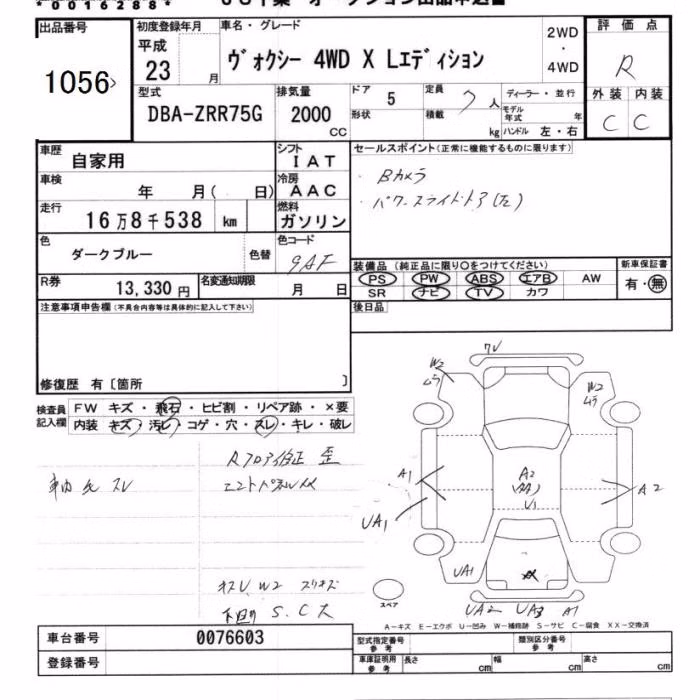 *00162888*
出品番号
1056
初度登録年月
平成
23 月
車名・グレード
ヴォクシー 4WD X Lエディション
2WD
・
4WD
評価点
R
外装 内装
C C
型式
DBA-ZRR75G
排気量
2000
CC
ドア
5
形状
定員
7 人
積載
kg
ディーラー・並行
モデル年式 年
ハンドル 左・右
車歴
自家用
シフト
IAT
車検
年 月( 日)
冷房
AAC
走行
16万8千538 km
燃料
ガソリン
色
ダークブルー
色替
色コード
9AF
R券
13,330 円
名変通知期限
月 日
セールスポイント(正常に機能するものに限ります)
・Bカメラ
・パワースライドドア(左)
装備品(純正品に限り〇をつけてください)
PS PW ABS エアB AW
SR ナビ TV カワ
新車保証書
有・無
後日品
注意事項申告欄(不具合内容等は具体的に記入して下さい)
修復歴 有〔箇所 〕
検査員
記入欄
FW キズ・飛石・ヒビ割・リペア跡・×要
内装 キズ・汚レ・コゲ・穴・スレ・キレ・破レ
Rフロア修正 歪
エンドパネルXX
スリキズ
下廻り S.C大
ワレ
W2
ムラ
W2
ムラ
A1
UA1
A2
U1
A2
UA1
XX
UA2 UA3 A1
スペア
A－キズ E－エクボ U－凹み W－補修跡 S－サビ C－腐食 XX－交換済
車台番号
0076603
登録番号
型式指定番号
参考
類別区分番号
参考
車庫証明用
参考
長さ cm
幅 cm
高さ cm